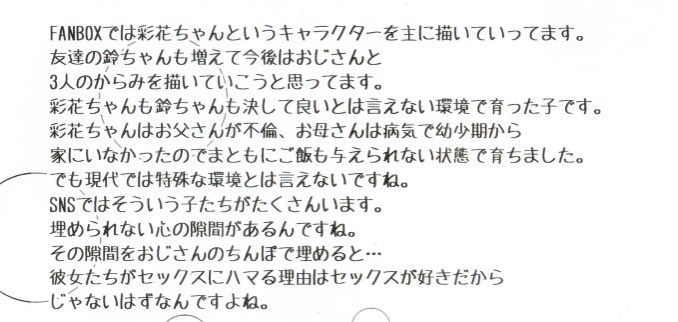 FANBOXでは彩花ちゃんというキャラクターを主に描いていってます。
友達の鈴ちゃんも増えて今後はおじさんと
3人のからみを描いていこうと思ってます。
彩花ちゃんも鈴ちゃんも決して良いとは言えない環境で育った子です。
彩花ちゃんはお父さんが不倫、お母さんは病気で幼少期から
家にいなかったのでまともにご飯も与えられない状態で育ちました。
でも現代では特殊な環境とは言えないですね。
SNSではそういう子たちがたくさんいます。
埋められない心の隙間があるんですね。
その隙間をおじさんのちんぽで埋めると…
彼女たちがセックスにハマる理由はセックスが好きだから
じゃないはずなんですよね。